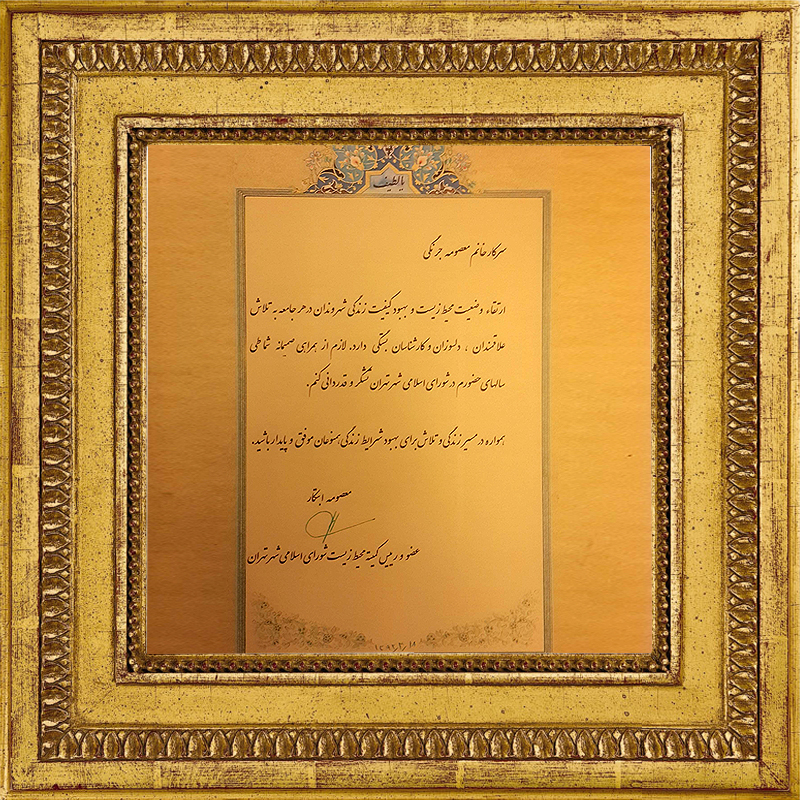 یا لطیف
سرکار خانم معصومه جرنگی
ارتقاء وضعیت محیط زیست و بهبود کیفیت زندگی شهروندان در هر جامعه به تلاش
علاقمندان ، دلسوزان و کارشناسان بستگی دارد. لازم از همراهی صمیمانه شما طی
سالهای حضورم در شورای اسلامی شهر تهران تشکر و قدردانی کنم.
همواره در مسیر زندگی و تلاش برای بهبود شرایط زندگی همنوعان موفق و پایدار باشید.
معصومه ابتکار
عضو و رییس کمیته محیط زیست شورای اسلامی شهر تهران